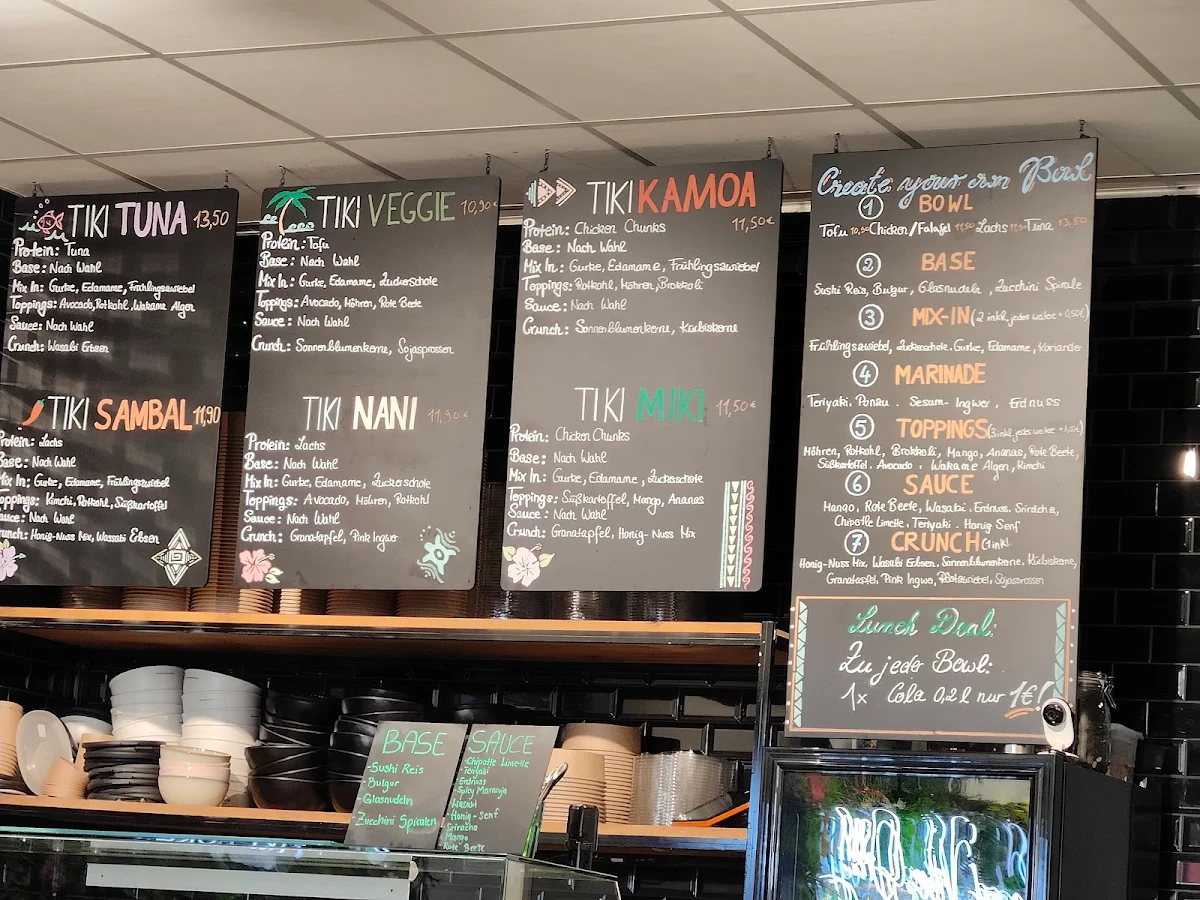 TIKI TUNA 13,50
Protein: Tuna
Base: Nach Wahl
Mix In: Gurke, Edamame, Frühlingszwiebel
Toppings: Avocado, Rotkohl, Wakame Algen
Sauce: Nach Wahl
Crunch: Wasabi Erbsen
TIKI SAMBAL 11,90
Protein: Lachs
Base: Nach Wahl
Mix In: Gurke, Edamame, Frühlingszwiebel
Toppings: Kimchi, Rotkohl, Süßkartoffel
Sauce: Nach Wahl
Crunch: Honig-Nuss Mix, Wassabi Erbsen
TIKI VEGGIE 10,90€
Protein: Tofu
Base: Nach Wahl
Mix In: Gurke, Edamame, Zuckerschote
Toppings: Avocado, Möhren, Rote Beete
Sauce: Nach Wahl
Crunch: Sonnenblumenkerne, Sojasprossen
TIKI NANI 11,90€
Protein: Lachs
Base: Nach Wahl
Mix In: Gurke, Edamame, Zuckerschote
Toppings: Avocado, Möhren, Rotkohl
Sauce: Nach Wahl
Crunch: Granatapfel, Pink Ingwer
TIKI KAMOA
11,50€
Protein: Chicken Chunks
Base: Nach Wahl
Mix In: Gurke, Edamame, Frühlingszwiebel
Toppings: Rotkohl, Möhren, Brokkoli
Sauce: Nach Wahl
Crunch: Sonnenblumenkerne, Kürbiskerne
TIKI MIKI 11,50€
Protein: Chicken Chunks
Base: Nach Wahl
Mix In: Gurke, Edamame, Zuckerschote
Toppings: Süßkartoffel, Mango, Ananas
Sauce: Nach Wahl
Crunch: Granatapfel, Honig-Nuss Mix
Create your own Bowl
1 BOWL
Tofu 10,90 Chicken/Falafel 11,50 Lachs 11,90 Tuna 13,50
2 BASE
Sushi Reis, Bulgur, Glasnudeln, Zucchini Spirale
3 MIX-IN (2 inkl. jedes weitee +0,50€)
Frühlingszwiebel, Zuckerschote, Gurke, Edamame, Koriander
4 MARINADE
Teriyaki, Ponzu, Sesam-Ingwer, Erdnuss
5 TOPPINGS (3 inkl. jedes weitee
Möhren, Rotkohl, Brokkoli, Mango, Ananas, Rote Beete,
Süßkartoffel, Avocado, Wakame Algen, Kimchi
6 SAUCE
Mango, Rote Beete, Wasabi, Erdnuss, Sriracha,
Chipotle Limette, Teriyaki, Honig Senf
7 CRUNCH (1 inkl.
Honig-Nuss Mix, Wasabi Erbsen, Sonnenblumenkerne, Kürbiskerne,
Granatapfel, Pink Ingwe, Röstzwiebel, Sojasprossen
Lunch Deal:
Zu jeder Bowl:
1x Cola 0,2 l nur 1€!
BASE
-Sushi Reis
-Bulgur
-Glasnudeln
-Zucchini Spiralen
SAUCE
-Chipotle Limette
-Teriyaki
-Erdnuss
-Spicy Mango
-Wasabi
-Honig-Senf
-Sriracha
-Mango
-Rote Beete